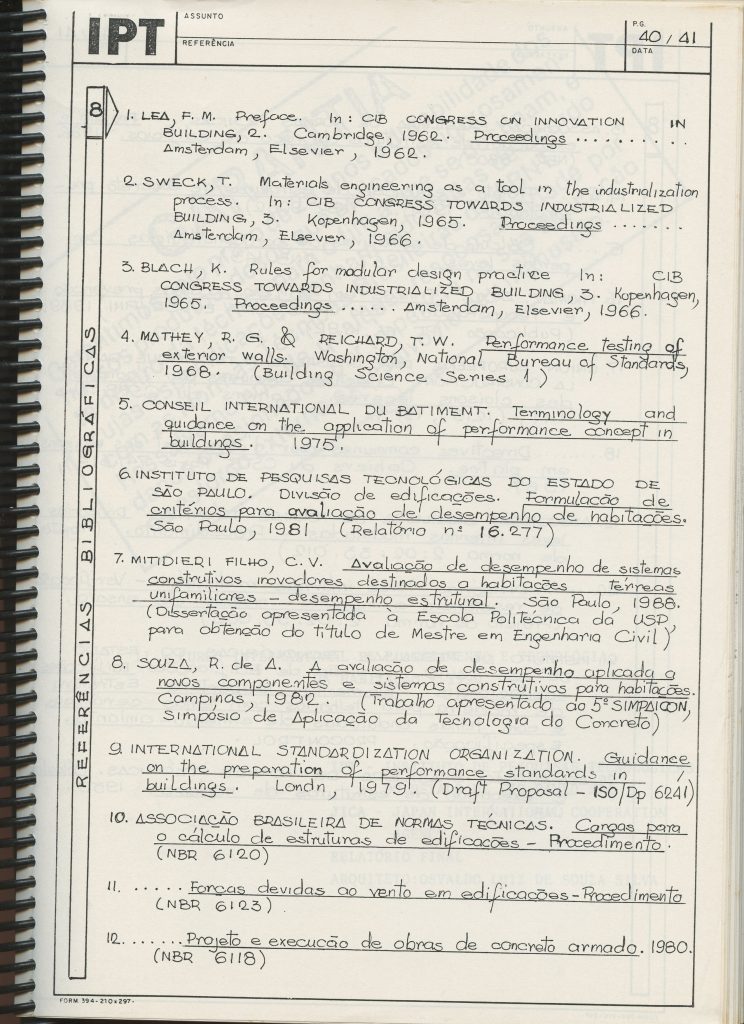 IPT
ASSUNTO
REFERÊNCIA
P.G.
40/41
DATA
8
REFERÊNCIAS BIBLIOGRÁFICAS
1. LEA, F. M. Preface. In: CIB CONGRESS ON INNOVATION IN
BUILDING, 2. Cambridge, 1962. Proceedings ..........
Amsterdam, Elsevier, 1962.
2. SWECK, T. Materials engineering as a tool in the industrialization
process. In: CIB CONGRESS TOWARDS INDUSTRIALIZED
BUILDING, 3. Kopenhagen, 1965. Proceedings .......
Amsterdam, Elsevier, 1966.
3. BLACH, K. Rules for modular design practive In: CIB
CONGRESS TOWARDS INDUSTRIALIZED BUILDING, 3. Kopenhagen,
1965. Proceedings ...... Amsterdam, Elsevier, 1966.
4. MATHEY, R. G. & REICHARD, T. W. Performance testing of
exterior walls. Washington, National Bureau of Standards,
1968. (Building Science Series 1)
5. CONSEIL INTERNATIONAL DU BATIMENT. Terminology and
guidance on the application of performance concept in
buildings. 1975.
6. INSTITUTO DE PESQUISAS TECNOLÓGICAS DO ESTADO DE
SÃO PAULO. Divisão de edificações. Formulação de
critérios para avaliação de desempenho de habitações.
São Paulo, 1981 (Relatório nº 16.277)
7. MITIDIERI FILHO, C. V. Avaliação de desempenho de sistemas
construtivos inovadores destinados a habitações térreas
unifamiliares - desempenho estrutural. São Paulo, 1988.
(Dissertação apresentada à Escola Politécnica da USP,
para obtenção do título de Mestre em Engenharia Civil)
8. SOUZA, R. de A. A avaliação de desempenho aplicada a
novos componentes e sistemas construtivos para habitações.
Campinas, 1982. (Trabalho apresentado ao 5º SIMPAICON,
Simpósio de Aplicação da Tecnologia do Concreto)
9. INTERNATIONAL STANDARDIZATION ORGANIZATION. Guidance
on the preparation of performance standards in
buildings. Londn, 1979. (Draft Proposal - ISO/Dp 6241)
10. ASSOCIAÇÃO BRASILEIRA DE NORMAS TÉCNICAS. Cargas para
o cálculo de estruturas de edificações - Procedimento.
(NBR 6120)
11. ...... Forças devidas ao vento em edificações - Procedimento
(NBR 6123)
12. ....... Projeto e execução de obras de concreto armado. 1980.
(NBR 6118)
FORM. 394 - 210x297-